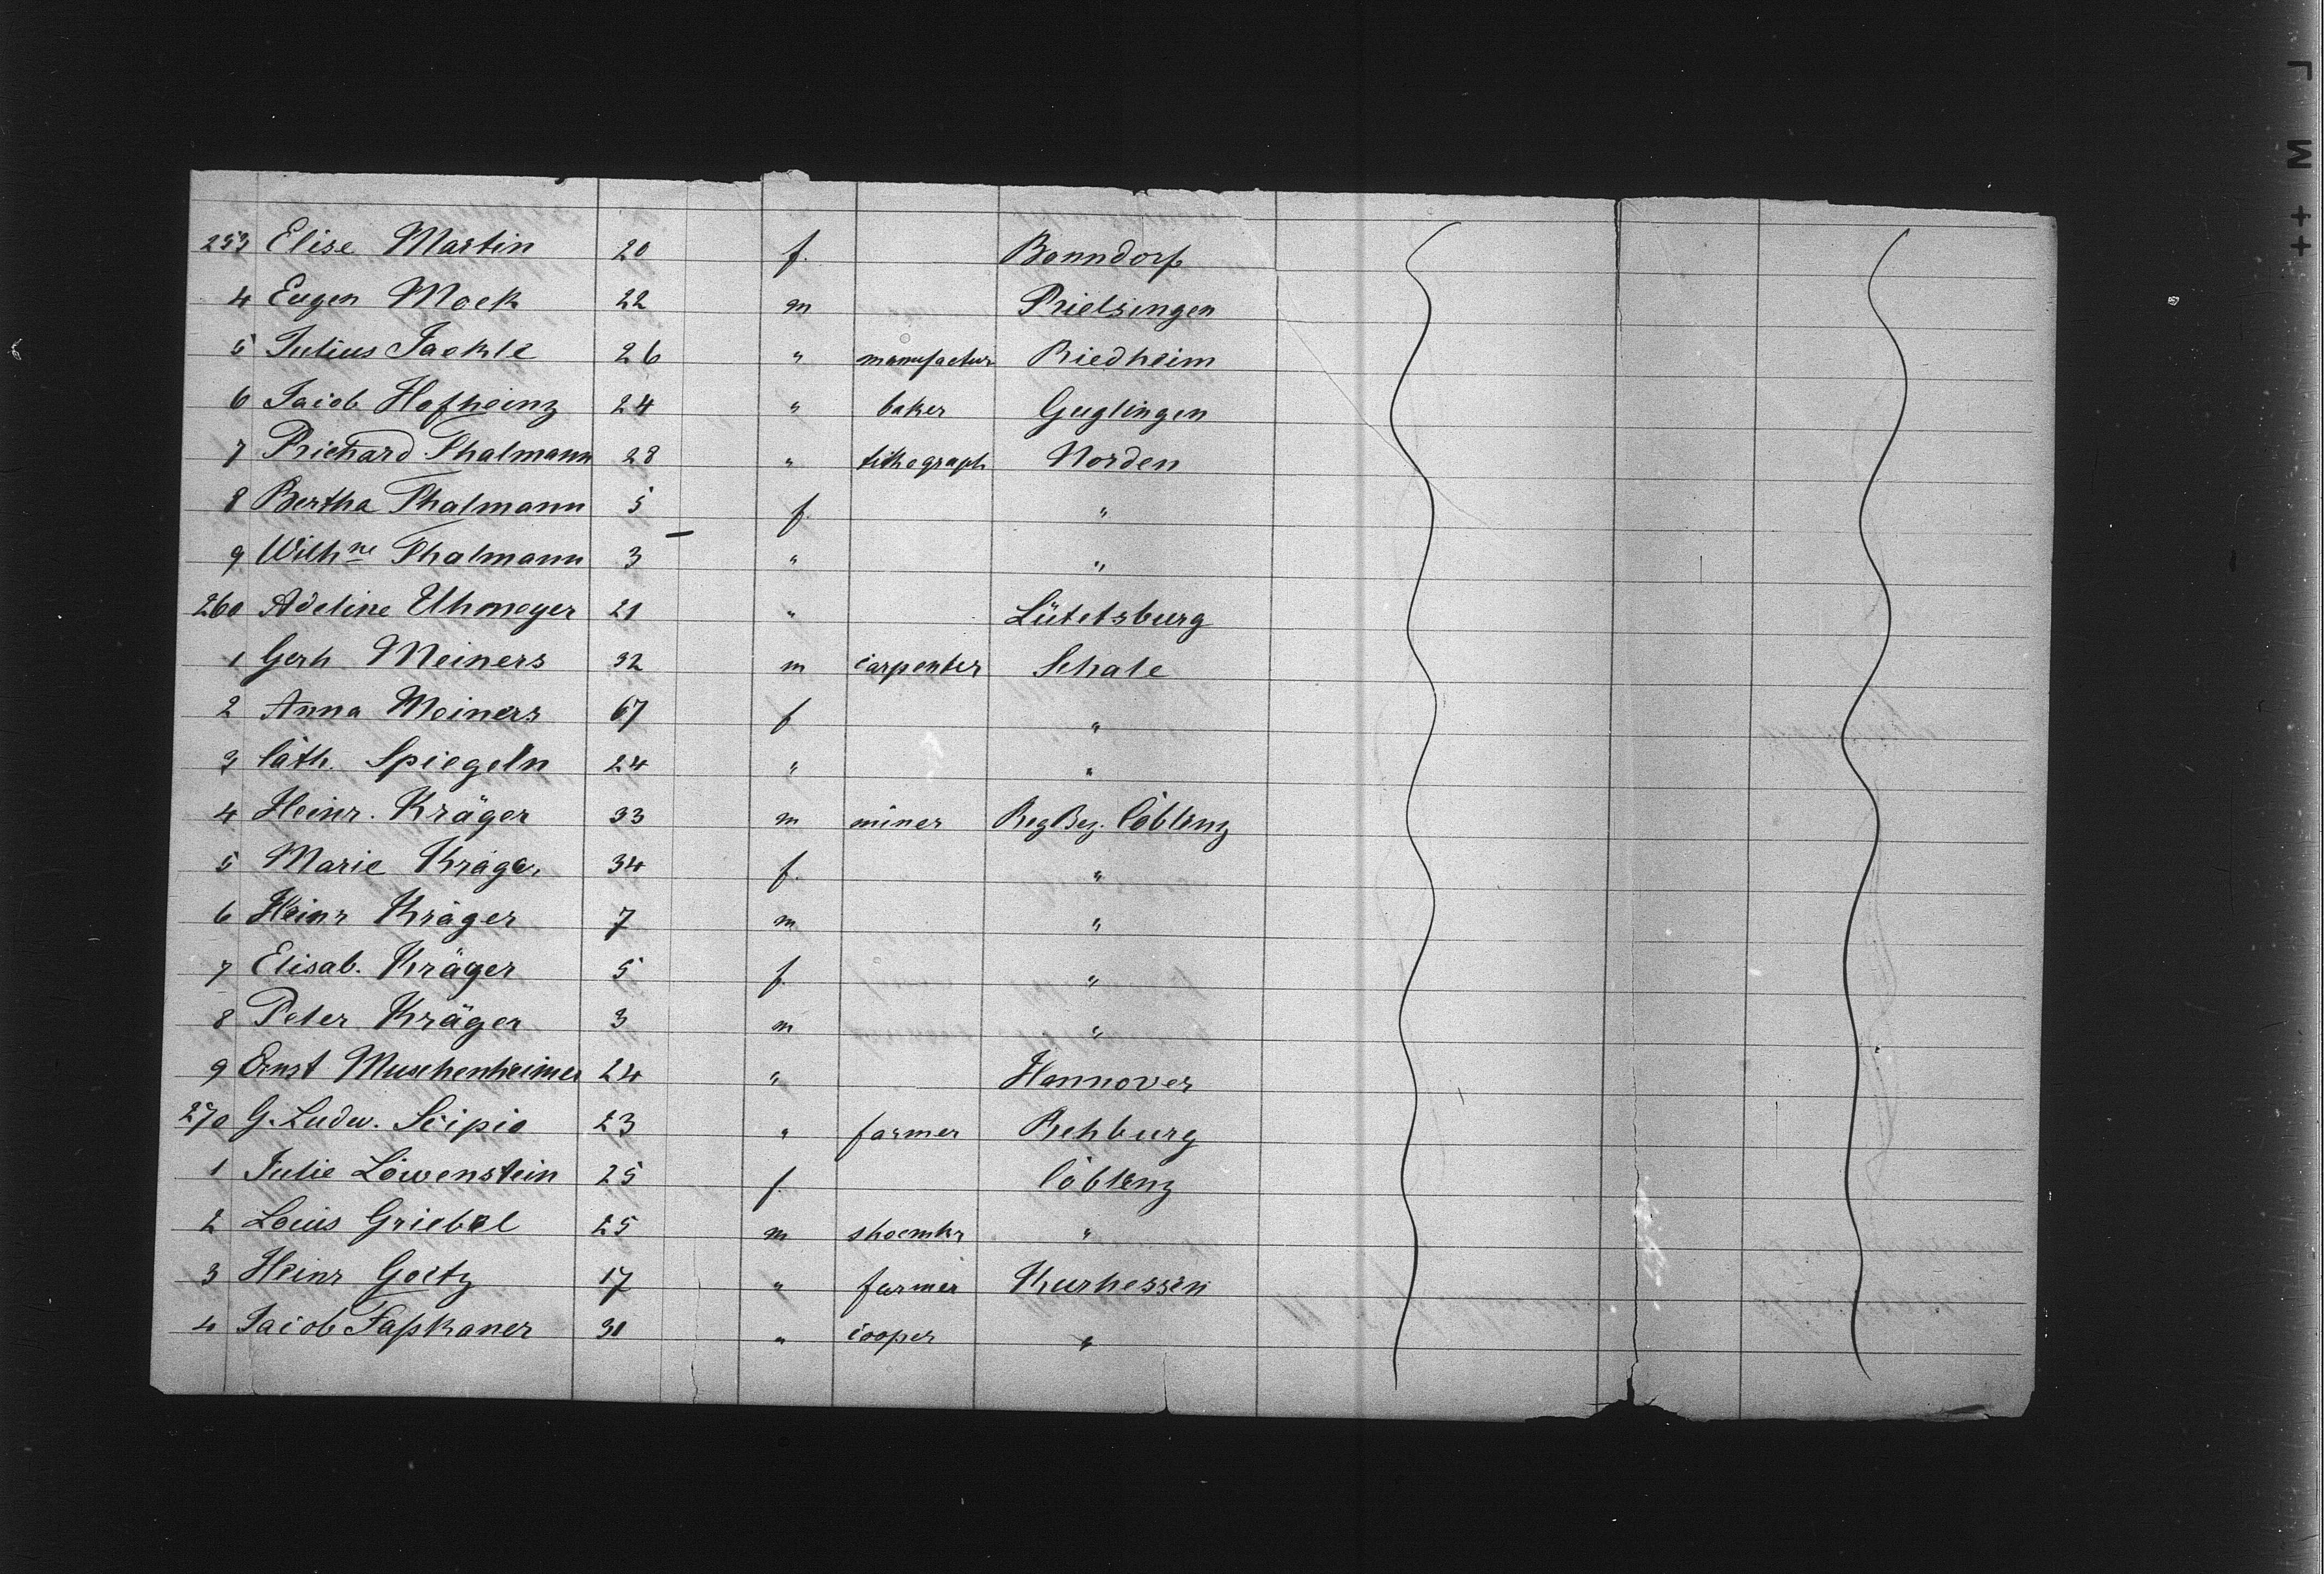 253 Elise Martin 20 f. Bonndorf
4 Eugen Mock 22 m Rielsingen
5 Julius Jackle 26 " manufactur Riedheim
6 Jacob Hofheinz 24 " baker Guglingen
7 Richard Thalmann 28 " lithograph Norden
8 Bertha Thalmann 5 f. "
9 Wilhne Thalmann 3 — " "
260 Adeline Uhmeyer 21 " Lütetsburg
1 Gerh Meiners 32 m carpenter Schale
2 Anna Meiners 67 f "
3 Cath. Spiegeln 24 " "
4 Heinr. Kräger 33 m miner Reg Bez. Coblenz
5 Marie Kräger 34 f. "
6 Heinr Kräger 7 m "
7 Elisab. Kräger 5 f. "
8 Peter Kräger 3 m "
9 Ernst Muschenheimer 24 " Hannover
270 G. Ludw. Scipio 23 " farmer Rehburg
1 Julie Löwenstein 25 f. Coblenz
2 Louis Griebel 25 m shoemkr "
3 Heinr Goetz 17 " farmer Kurhessen
4 Jacob Faßkaner 30 " cooper "
L M ++